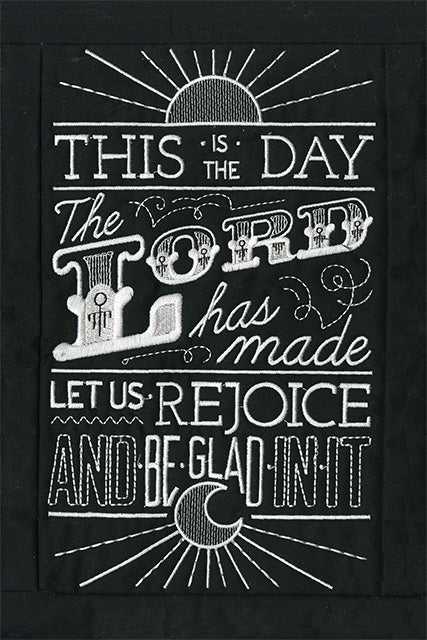 THIS · IS THE DAY
The LORD
has
made
LET US · REJOICE
AND · BE · GLAD · IN · IT